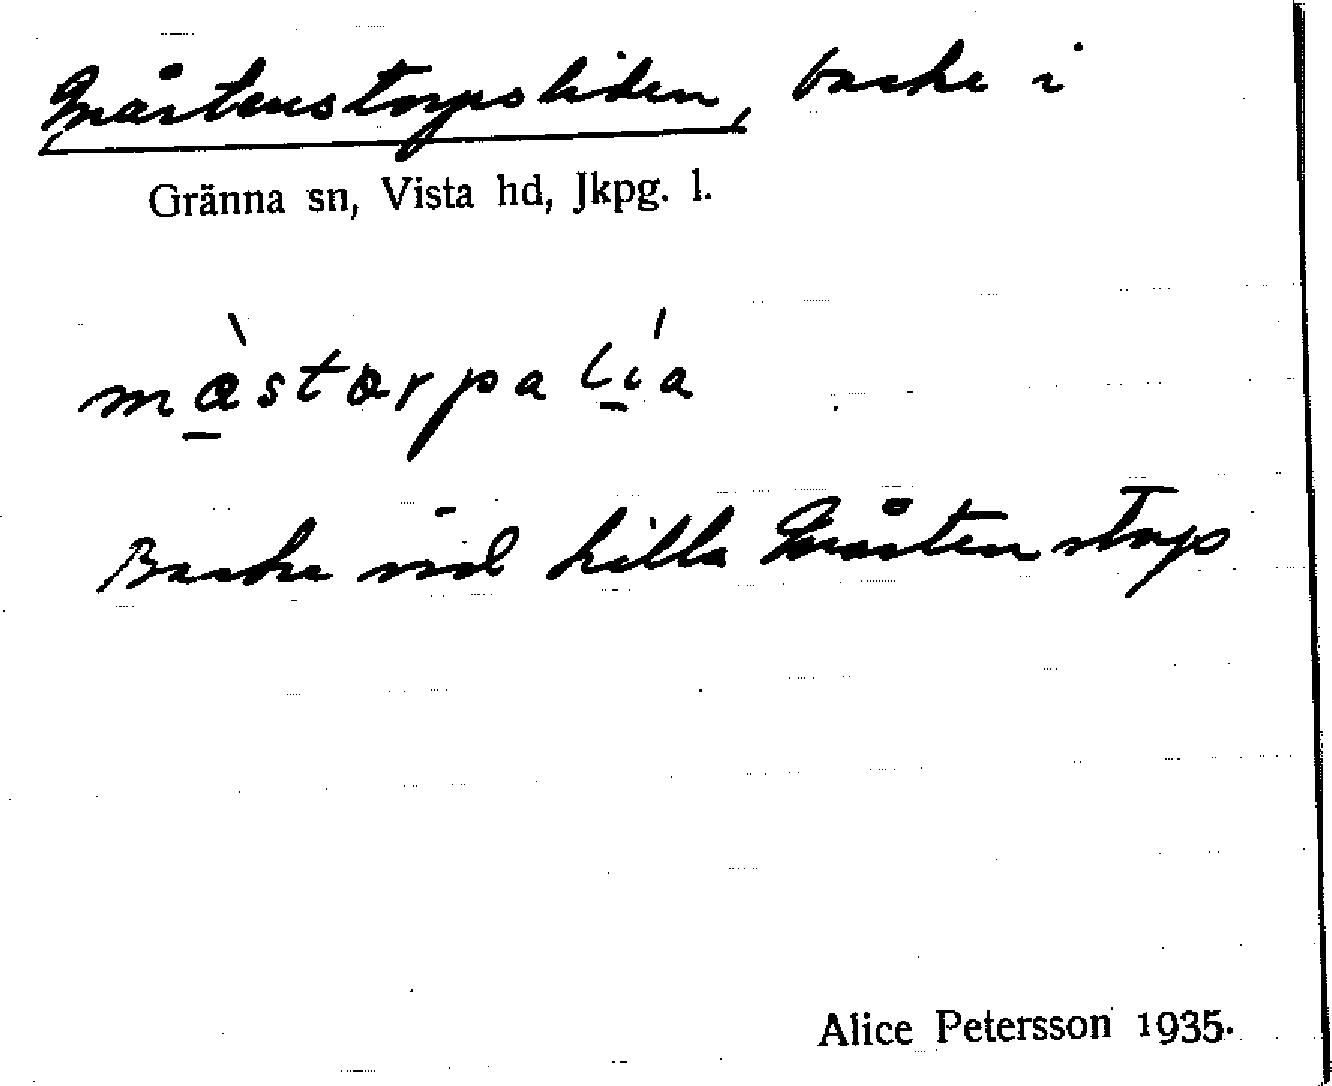 Mårtenstorpsliden, backe i
Gränna sn, Vista hd, Jkpg. l.
màstorpalía
Backe vid källa Mårtenstorp
Alice Petersson 1935.